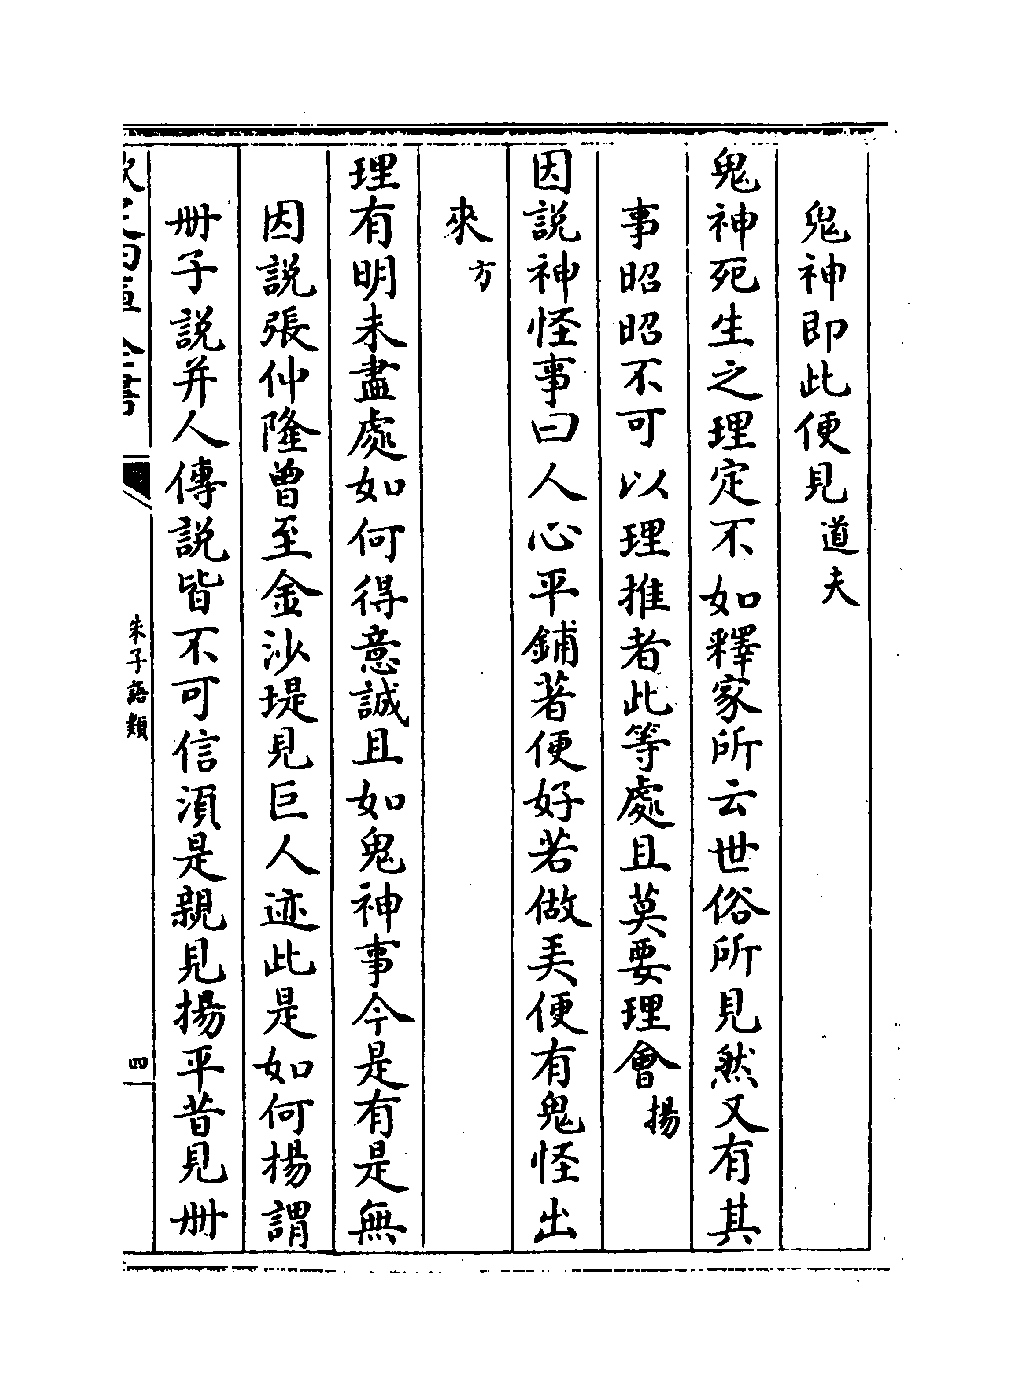 鬼神即此便見道夫
鬼神死生之理定不如釋家所云世俗所見然又有其
事昭昭不可以理推者此等處且莫要理會揚
因説神怪事曰人心平鋪著便好若做弄便有鬼怪出
來方
理有明未盡處如何得意誠且如鬼神事今是有是無
因説張仲隆曾至金沙堤見巨人迹此是如何揚謂
冊子説并人傳説皆不可信須是親見揚平昔見冊
欽定四庫全書
朱子語類
四